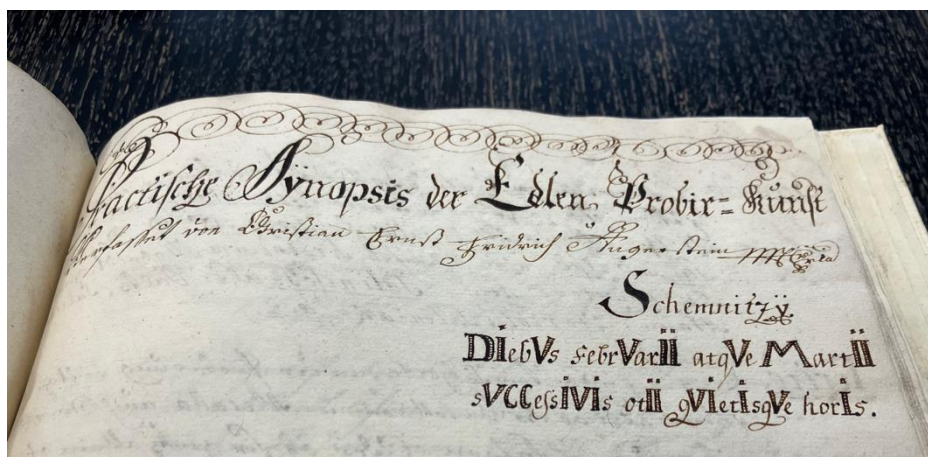 Practische Sÿnopsis der Edlen Probir= Kunst
Verfasset von Christian Ernst Fridrich Angerstein
Schemnitzÿ.
DIebVs febrVarII atqVe MartII
sVCCessIVIs otII qVIetIsqVe horIs.